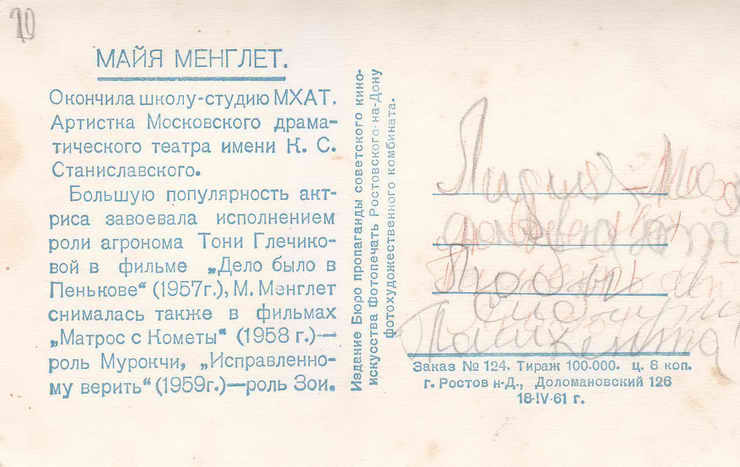 10
МАЙЯ МЕНГЛЕТ.
Окончила школу-студию МХАТ.
Артистка Московского драма-
тического театра имени К. С.
Станиславского.
Большую популярность акт-
риса завоевала исполнением
роли агронома Тони Глечико-
вой в фильме „Дело было в
Пенькове“ (1957г.), М. Менглет
снималась также в фильмах
„Матрос с Кометы“ (1958 г.)—
роль Мурокчи, „Исправленно-
му верить“ (1959г.)—роль Зои.
Издание Бюро пропаганды советского кино-
искусства Фотопечать Ростовского-на-Дону
фотохудожественного комбината.
Лидия
Ташкента
Заказ № 124. Тираж 100.000. ц. 6 коп.
г. Ростов н-Д., Доломановский 126
18-IV-61 г.